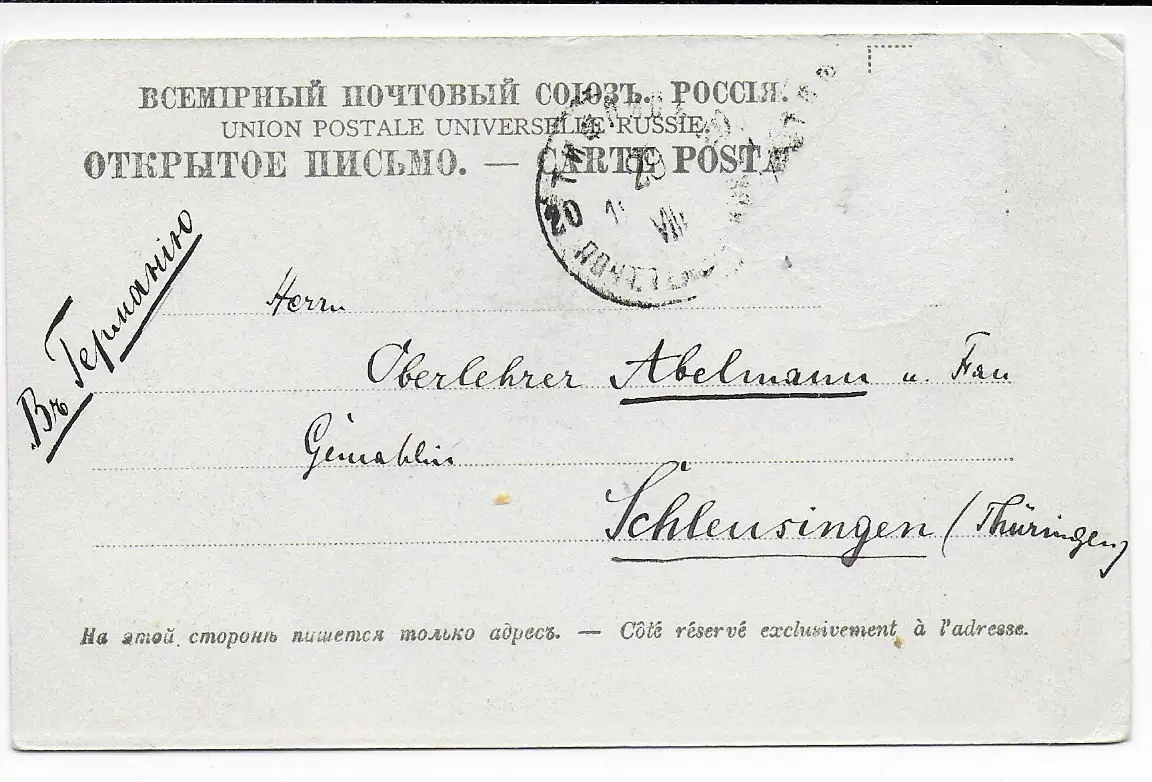 ВСЕМІРНЫЙ ПОЧТОВЫЙ СОЮЗЪ. РОССІЯ.
UNION POSTALE UNIVERSELLE RUSSIE
ОТКРЫТОЕ ПИСЬМО. — CARTE POSTA
20
VIII
Въ Германію
Herrn
Oberlehrer Abelmann u. Frau
Gemahlin
Schleusingen (Thüringen)
На этой сторонѣ пишется только адресъ. — Côté réservé exclusivement à l'adresse.